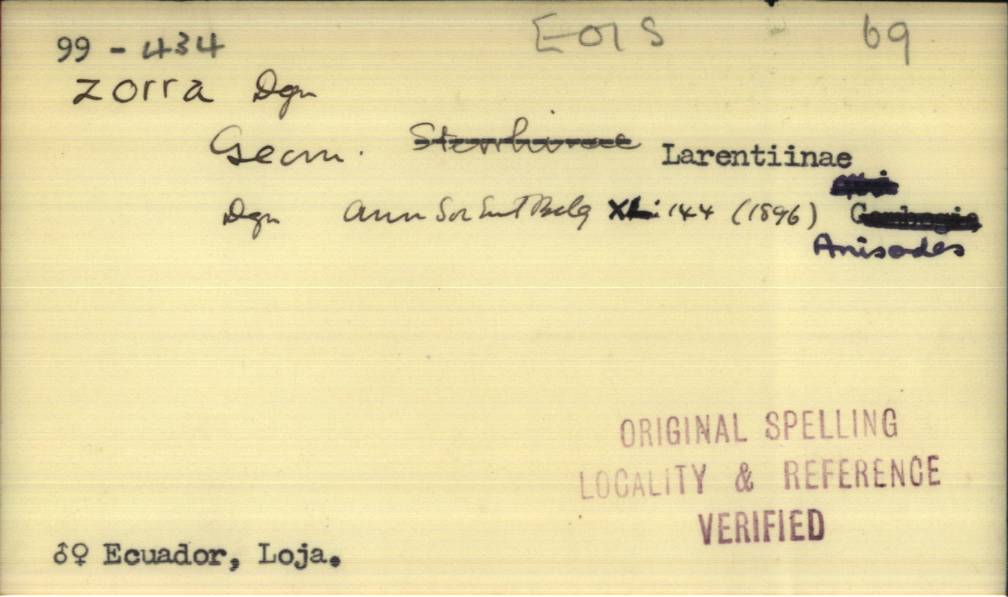 99 - 434 EOIS 69
zorra Dgn
Geom. Sterrhinae Larentiinae
Dgn Ann Soc Ent Belg XL: 144 (1896) Cambogia
Anisodes
ORIGINAL SPELLING
LOCALITY & REFERENCE
VERIFIED
♂♀ Ecuador, Loja.